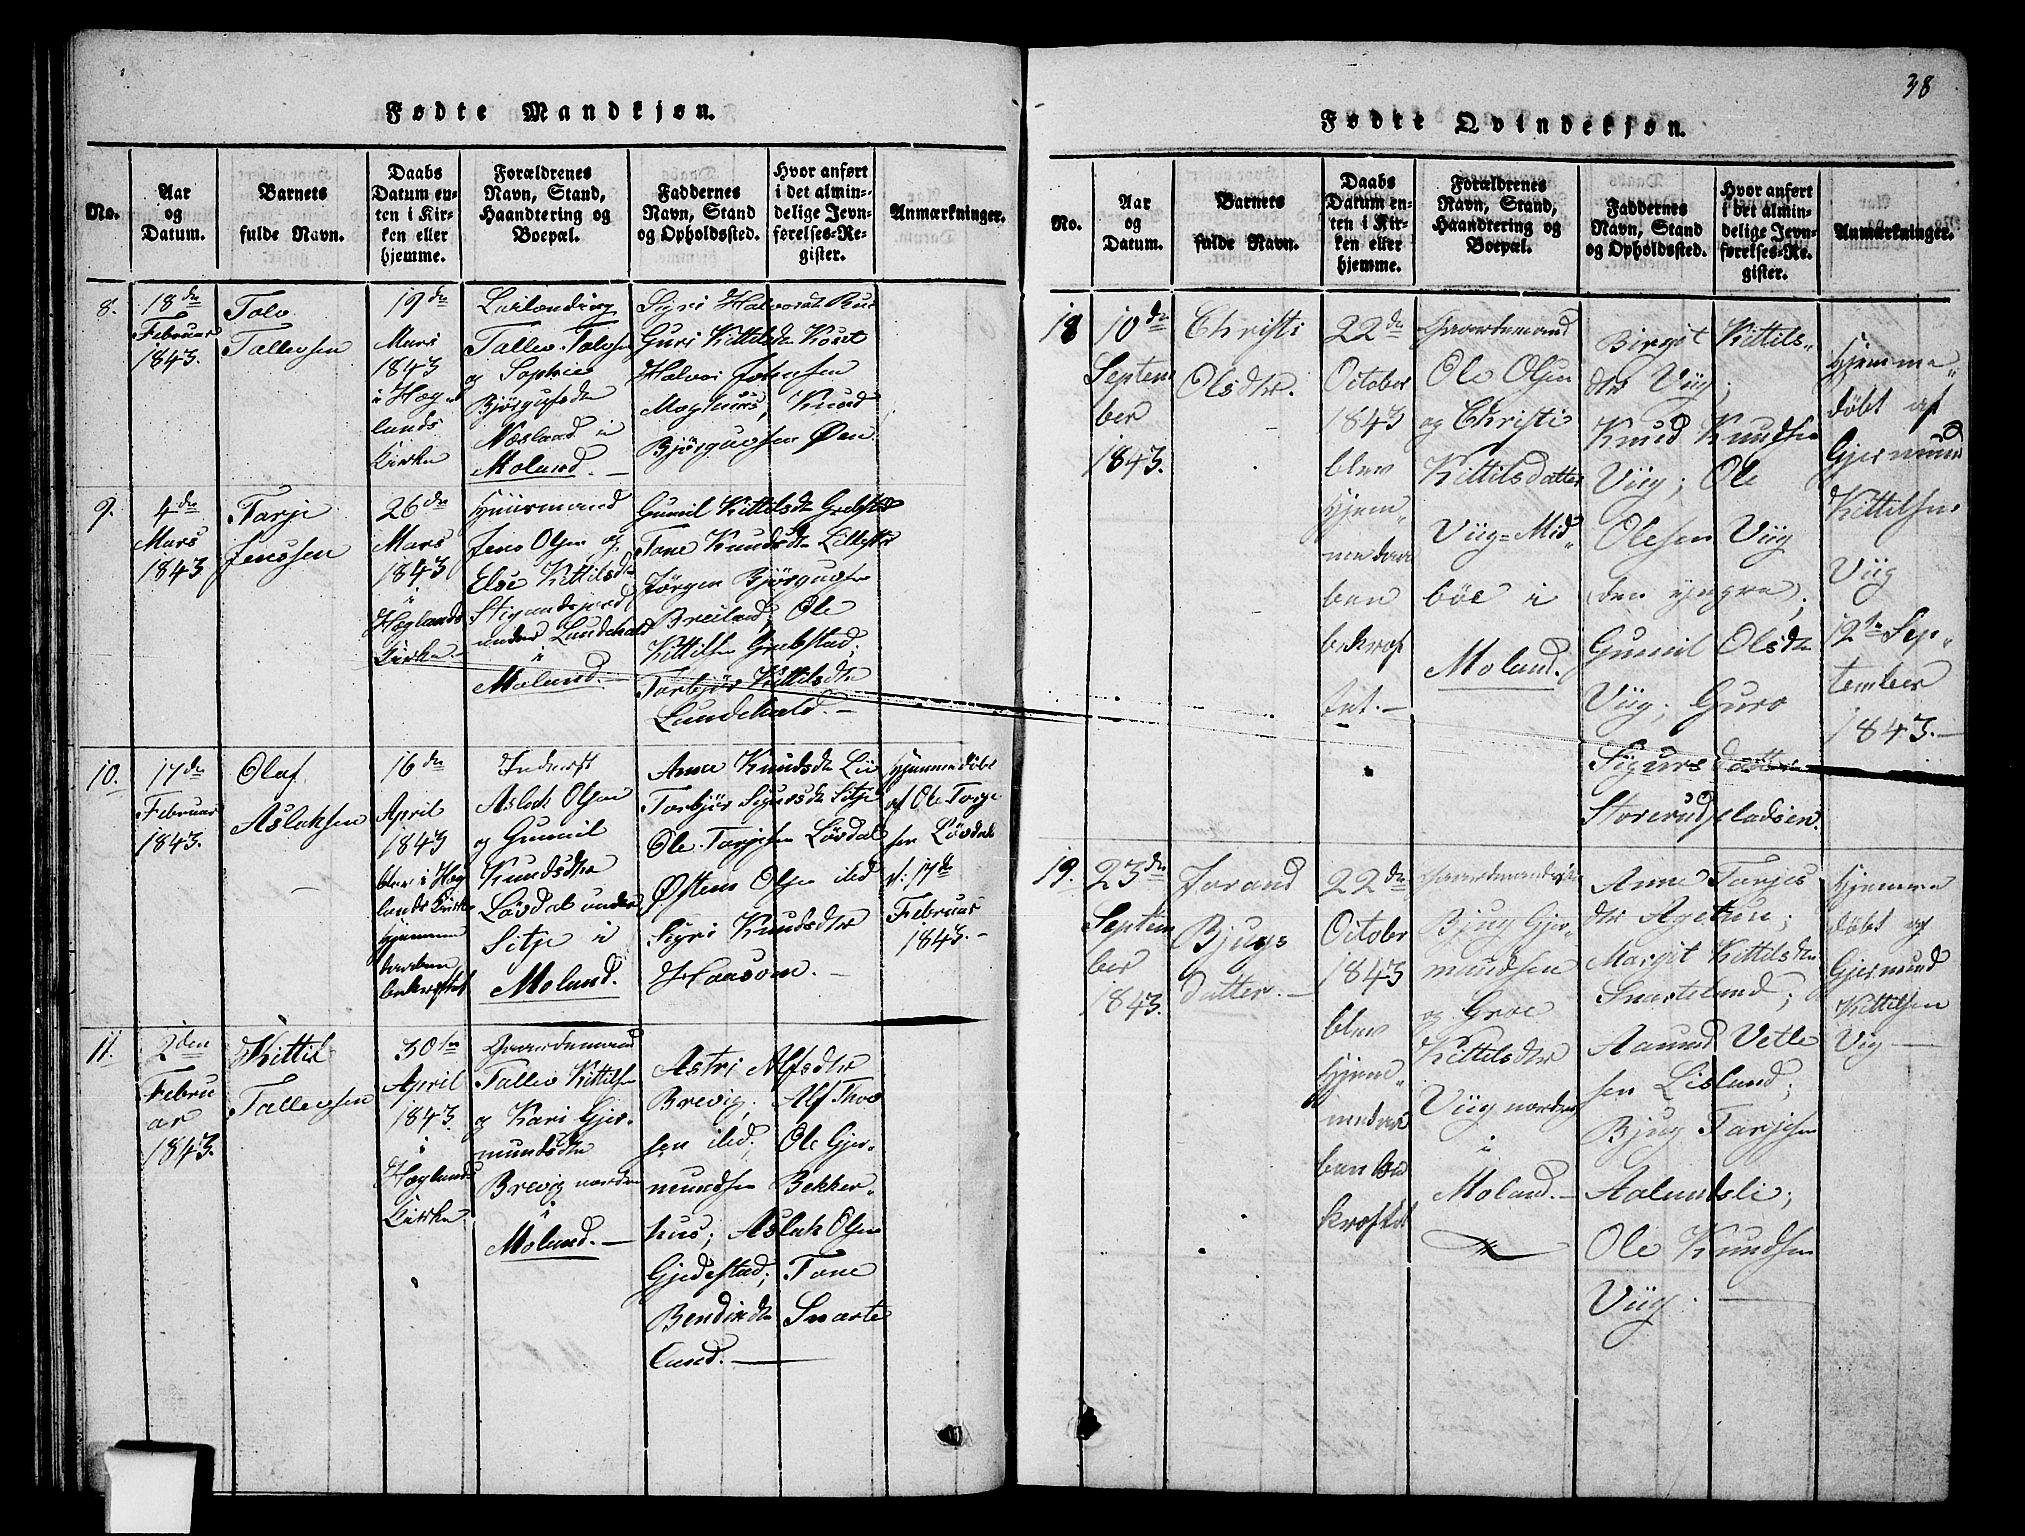 38
Fødte Mandkjøn.
No.
Aar
og
Datum.
Barnets
fulde Navn.
Daabs
Datum en-
ten i Kir-
ken eller
hjemme.
Forældrenes
Navn, Stand,
Haandtering og
Boepæl.
Faddernes
Navn, Stand
og Opholdssted.
Hvor anført
i det almin-
delige Jevn-
førelses-Re-
gister.
Anmærkninger.
8.
18de
Februar
1843.
Tolv
Tallevsen
19de
Mars
1843
i Høg-
lands
Kirke
Tallev Tolvsen
og Sophie
Bjørgufsdtr
Næsland i
Moland. —
Sigri Halvorsdtr
Guri Kittilsdtr
Halvor Johnsen
Moghuus, Knud
Bjørgufsen Øen
9.
4de
Mars
1843
Tarje
Jenssen
26de
Mars
1843
i
Høglands
Kirke. —
Huusmand
Jens Olsen og
Else Kittilsdtr
under Lundekvald
i
Moland. —
Gunnil Kittilsdtr
Tone Knudsdtr
Jørgen Bjørgufsen
Breiland; Ole
Kittilsen Grubstad;
Torbjør Kittilsdtr
Lundekvald. —
10.
17de
Februar
1843.
Olaf
Aslaksen
16de
April
1843
blev i Høg
lands Kirke
Hjemme
daaben
bekræftet
Inderst
Aslak Olsen
og Gunnil
Knudsdtr
Løvdal under
Sitje i
Moland.
Anne Knudsdtr Lii
Torbjør Sigursdtr Sitje
Ole Tarjesen Løvdal
Østen Olsen ibid
Sigri Knudsdtr
Haasom. —
Hjemmedøbt
af Ole Tarje
sen Løvdal
d: 17de
Februar
1843. —
11.
2den
Febru
ar
1843.
Kittil
Tallevsen
30te
April
1843.
i
Høglands
Kirke.
Gaardemand
Tallev Kittilsen
og Kari Gjer-
mundsdtr
Brevig nordre
i
Moland. —
Astri Alfsdtr
Brevig; Alf Thor
sen ibid; Ole Gjer-
mundsen Bekker-
hus; Aslak Olsen
Gjedestad; Tone
Bendixdtr Snarte
land. —
Fødte Qvindekjøn.
No.
Aar
og
Datum.
Barnets
fulde Navn.
Daabs
Datum en-
ten i Kir-
ken eller
hjemme.
Forældrenes
Navn, Stand,
Haandtering og
Boepæl.
Faddernes
Navn, Stand
og Opholdssted.
Hvor anført
i det almin-
delige Jevn-
førelses-Re-
gister.
Anmærkninger.
18
10de
Septem
ber
1843.
Christi
Olsdtr.
22de
October
1843
blev
Hjem-
medaa
ben
bekræf
tet. —
Gaardemand
Ole Olsen
og Christi
Kittilsdatter
Viig-Mid-
bøe i
Moland.
Birgit Kittils-
dtr Viig;
Knud Knudsen
Viig; Ole
Olesen Viig
den yngre;
Gunnil Olsdtr
Viig; Guro
Sigursdatter
Storerudsladsen.
Hjemme-
døbt af
Gjermund
Kittelsen
Viig
12te Sep-
tember
1843. —
19.
23de
Septem
ber
1843.
Jorand
Bjugs
datter. —
22de
October
1843
blev
Hjem-
medaa
ben be
kræftet
Bjug Gjer-
mundsen
og Groe
Kittilsdtr
Viig nordre
i
Moland. —
Anne Tarjes
dtr Agetun;
Margit Kittilsdtr
Snarteland;
Aamund Vetle
sen Lisland;
Bjug Tarjesen
Aalundsli;
Ole Knudsen
Viig. —
Hjemme
døbt af
Gjermund
Kittilsen
Vig —